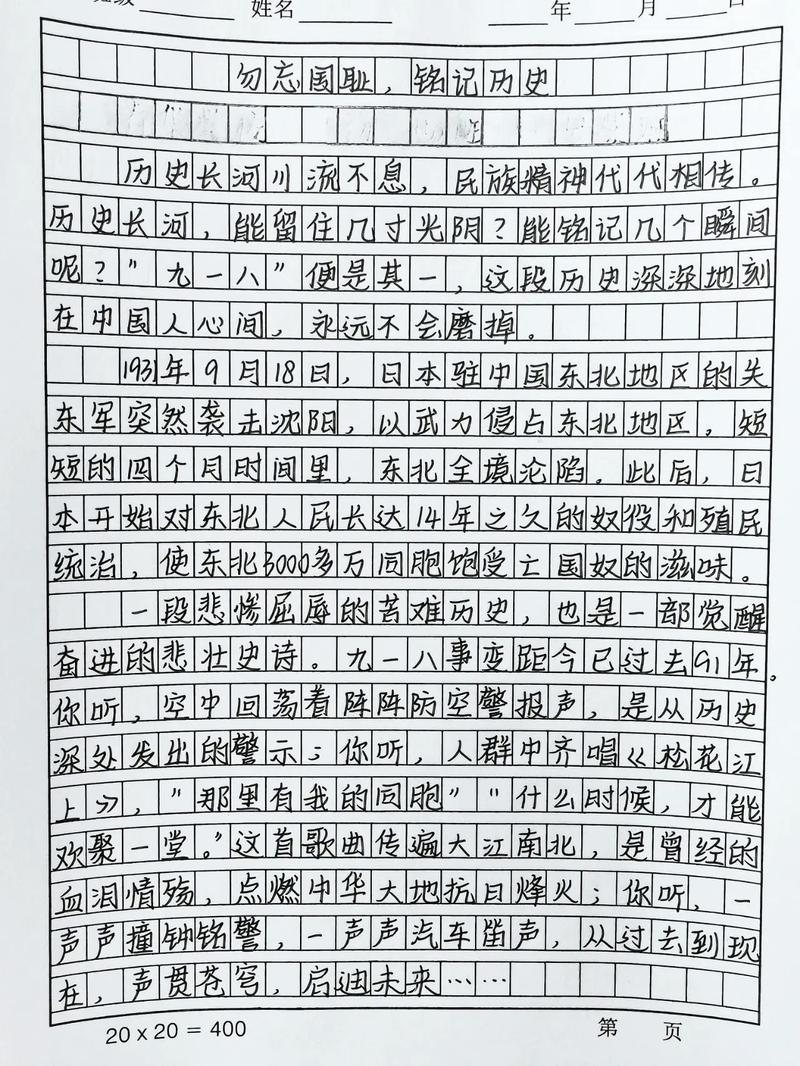 班级 姓名 年 月 日
勿忘国耻，铭记历史
历史长河川流不息，民族精神代代相传。
历史长河，能留住几寸光阴？能铭记几个瞬间
呢？"九一八"便是其一，这段历史深深地刻
在中国人心间，永远不会磨掉。
1931年9月18日，日本驻中国东北地区的关
东军突然袭击沈阳，以武力侵占东北地区。短
短的四个月时间里，东北全境沦陷。此后，日
本开始对东北人民长达14年之久的奴役和殖民
统治，使东北3000多万同胞饱受亡国奴的滋味。
一段悲惨屈辱的苦难历史，也是一部觉醒
奋进的悲壮史诗。九一八事变距今已过去91年。
你听，空中回荡着阵阵防空警报声，是从历史
深处发出的警示；你听，人群中齐唱《松花江
上》，"那里有我的同胞""什么时候，才能
欢聚一堂。"这首歌曲传遍大江南北，是曾经的
血泪情殇，点燃中华大地抗日烽火；你听，一
声声撞钟铭警，一声声汽车笛声，从过去到现
在，声贯苍穹，启迪未来……
20×20=400 第 页